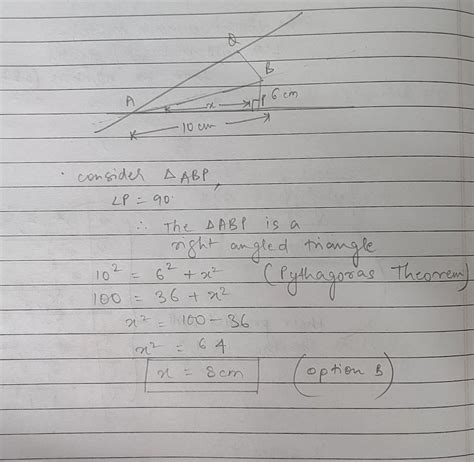 Q
B
A
x
P
6 cm
10 cm
consider △ABP,
∠P = 90°
∴ The △ABP is a
right angled triangle
10² = 6² + x² (Pythagoras Theorem)
100 = 36 + x²
x² = 100 - 36
x² = 64
x = 8cm (option B)